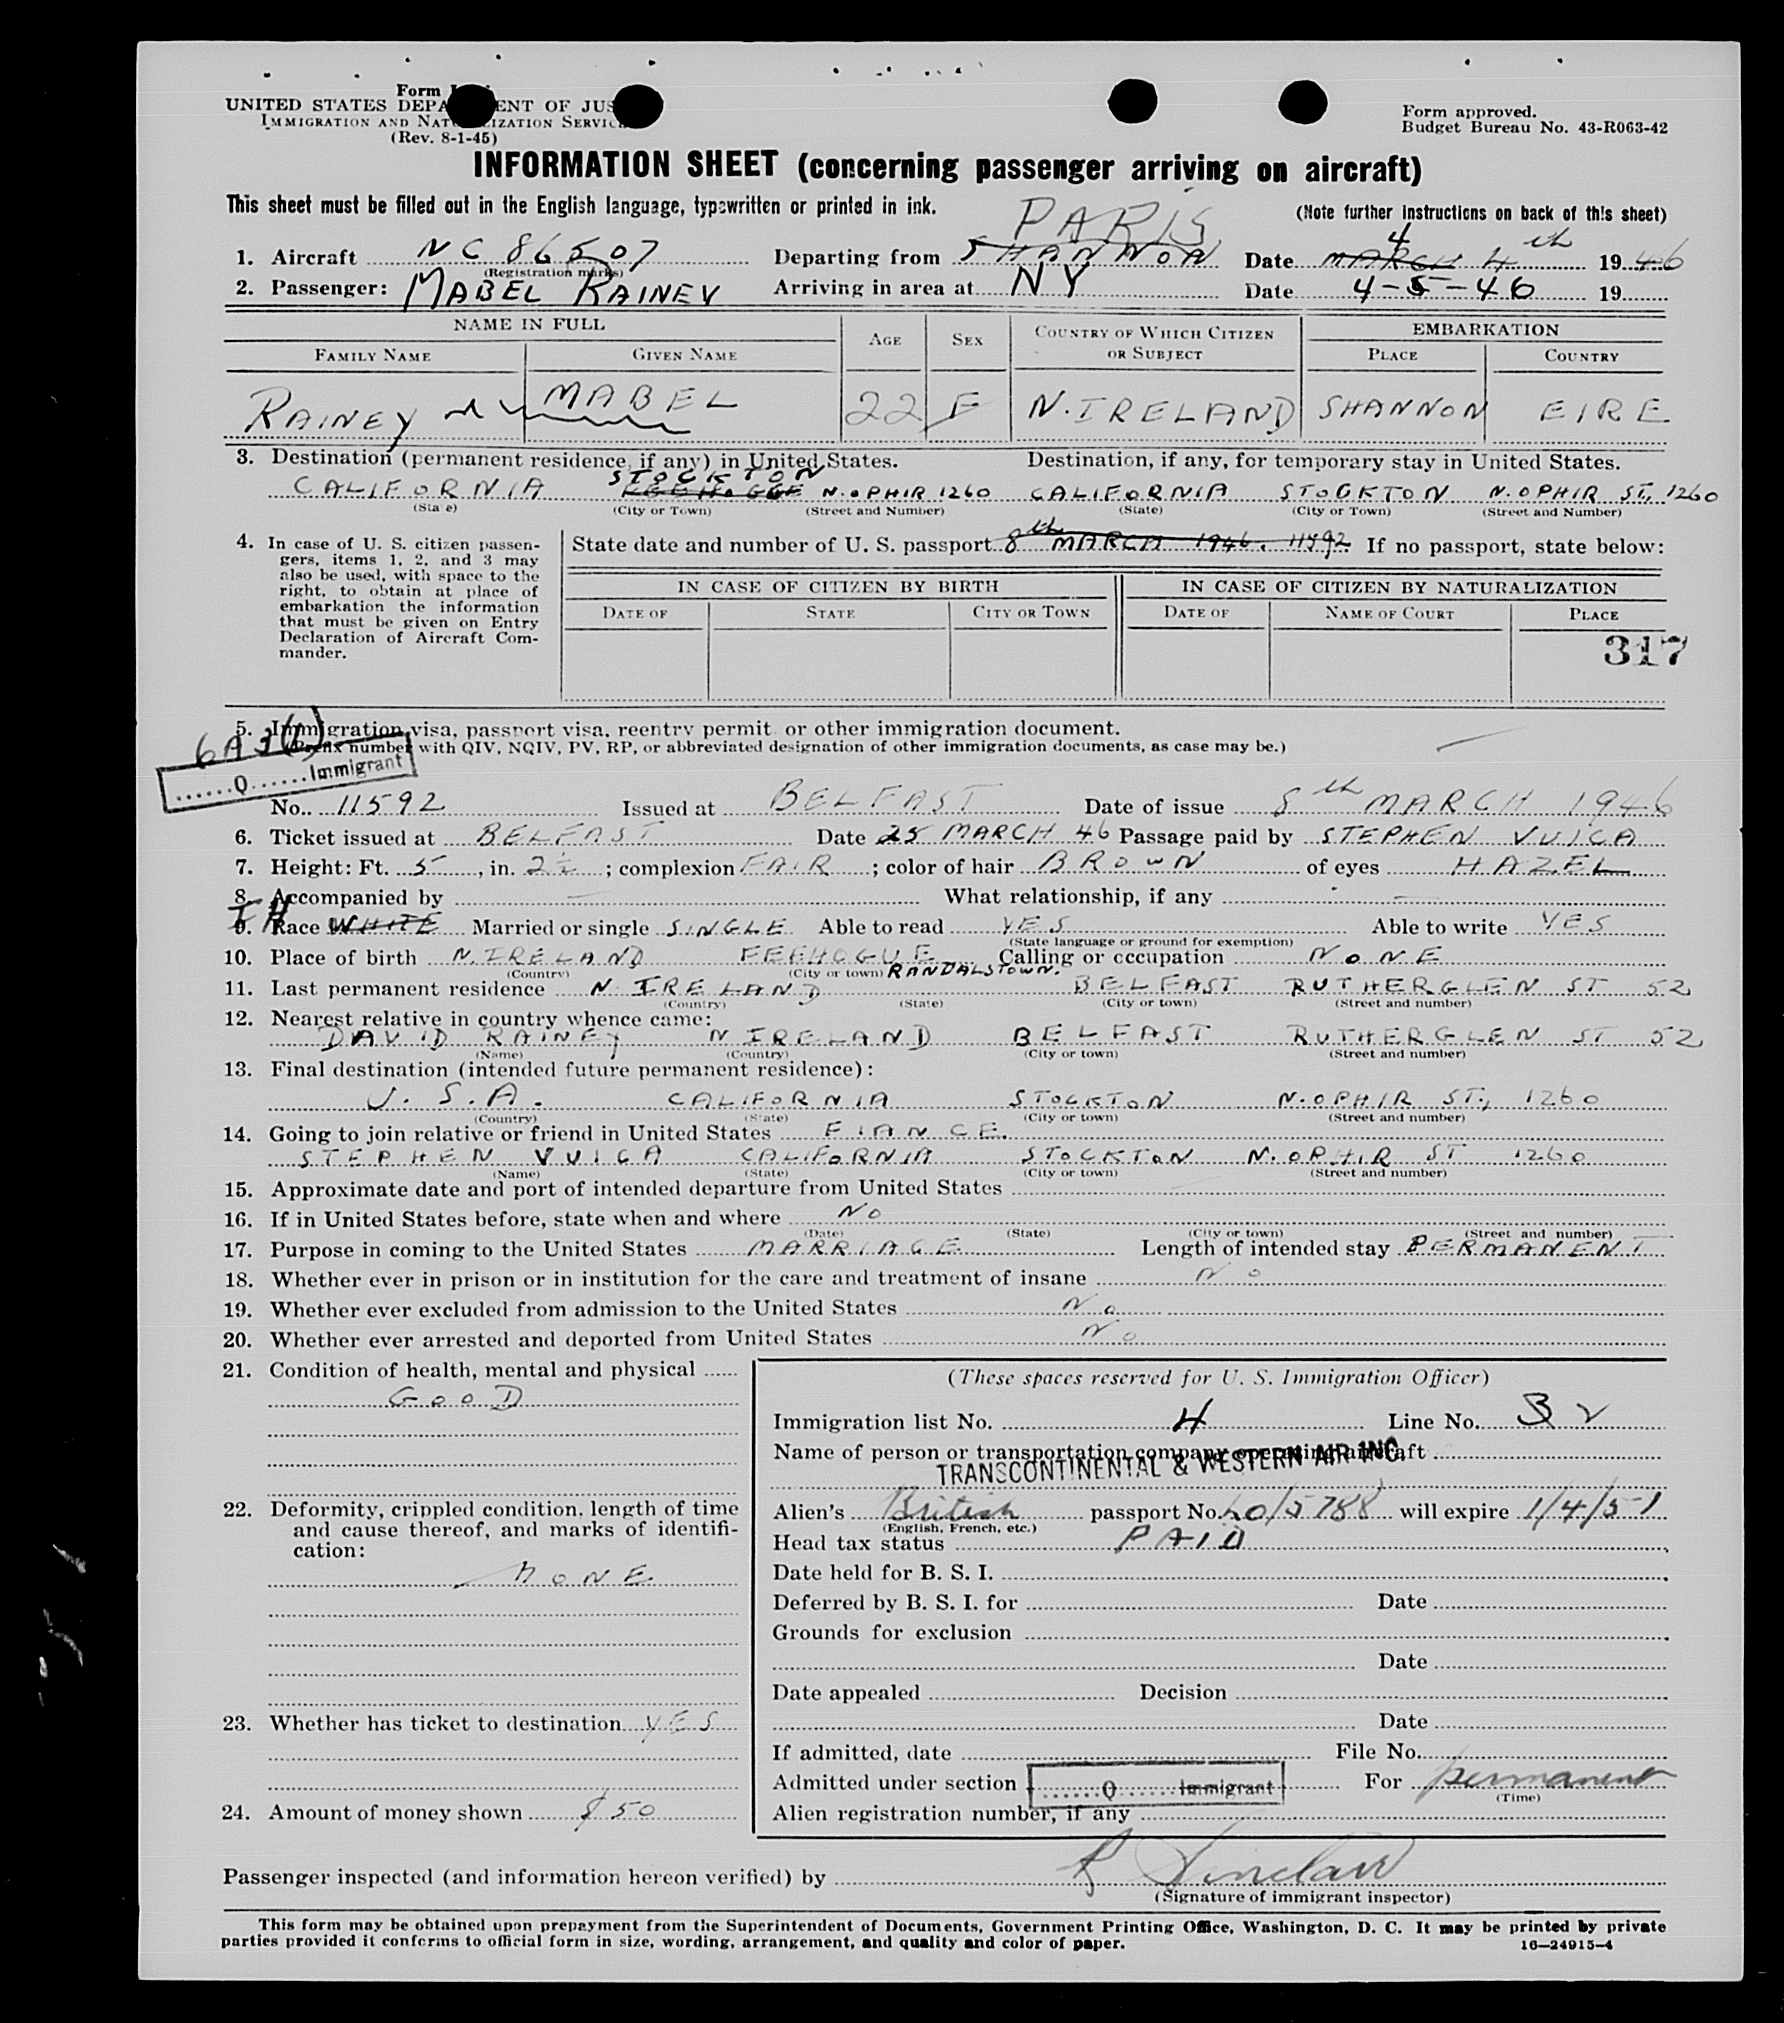 Form
UNITED STATES DEPA ENT OF JUS
IMMIGRATION AND NAT IZATION SERVIC
(Rev. 8-1-45)
Form approved.
Budget Bureau No. 43-R063-42
INFORMATION SHEET (concerning passenger arriving on aircraft)
This sheet must be filled out in the English language, typewritten or printed in ink.
(Note further instructions on back of this sheet)
PARIS
1. Aircraft NC 86507 Departing from SHANNON Date MARCH 4 4th 1946
(Registration marks)
2. Passenger: MABEL RAINEY Arriving in area at NY Date 4-5-46 19
NAME IN FULL AGE SEX COUNTRY OF WHICH CITIZEN OR SUBJECT EMBARKATION
FAMILY NAME GIVEN NAME PLACE COUNTRY
RAINEY MABEL 22 F N. IRELAND SHANNON EIRE
3. Destination (permanent residence, if any) in United States. Destination, if any, for temporary stay in United States.
STOCKTON
CALIFORNIA N. OPHIR 1260 CALIFORNIA STOCKTON N. OPHIR ST., 1260
(State) (City or Town) (Street and Number) (State) (City or Town) (Street and Number)
4. In case of U. S. citizen passen-
gers, items 1, 2, and 3 may
also be used, with space to the
right, to obtain at place of
embarkation the information
that must be given on Entry
Declaration of Aircraft Com-
mander.
State date and number of U. S. passport 8th MARCH 1946. 11592. If no passport, state below:
IN CASE OF CITIZEN BY BIRTH IN CASE OF CITIZEN BY NATURALIZATION
DATE OF STATE CITY OR TOWN DATE OF NAME OF COURT PLACE
317
5. Immigration visa, passport visa, reentry permit or other immigration document.
6A3(1)
(Prefix number with QIV, NQIV, PV, RP, or abbreviated designation of other immigration documents, as case may be.)
......Q......Immigrant
No. 11592 Issued at BELFAST Date of issue 8th MARCH 1946
6. Ticket issued at BELFAST Date 25 MARCH 46 Passage paid by STEPHEN VUICA
7. Height: Ft. 5, in. 2½; complexion FAIR; color of hair BROWN of eyes HAZEL
8. Accompanied by — What relationship, if any —
IH
9. Race WHITE Married or single SINGLE Able to read YES Able to write YES
(State language or ground for exemption)
10. Place of birth N. IRELAND FEEHOGUE Calling or occupation NONE
(Country) (City or town) RANDALSTOWN.
11. Last permanent residence N. IRELAND BELFAST RUTHERGLEN ST 52
(Country) (State) (City or town) (Street and number)
12. Nearest relative in country whence came:
DAVID RAINEY N IRELAND BELFAST RUTHERGLEN ST 52
(Name) (Country) (City or town) (Street and number)
13. Final destination (intended future permanent residence):
U. S. A. CALIFORNIA STOCKTON N. OPHIR ST., 1260
(Country) (State) (City or town) (Street and number)
14. Going to join relative or friend in United States FIANCE.
STEPHEN VUICA CALIFORNIA STOCKTON N. OPHIR ST 1260
(Name) (State) (City or town) (Street and number)
15. Approximate date and port of intended departure from United States
16. If in United States before, state when and where NO
(Date) (State) (City or town) (Street and number)
17. Purpose in coming to the United States MARRIAGE Length of intended stay PERMANENT
18. Whether ever in prison or in institution for the care and treatment of insane NO
19. Whether ever excluded from admission to the United States NO
20. Whether ever arrested and deported from United States NO
21. Condition of health, mental and physical
GOOD
22. Deformity, crippled condition, length of time
and cause thereof, and marks of identifi-
cation:
NONE.
23. Whether has ticket to destination YES
24. Amount of money shown $50
(These spaces reserved for U. S. Immigration Officer)
Immigration list No. 4 Line No. 3
Name of person or transportation company operating aircraft
TRANSCONTINENTAL & WESTERN AIR INC.
Alien's British passport No. 20/5788 will expire 1/4/51
(English, French, etc.)
Head tax status PAID
Date held for B. S. I.
Deferred by B. S. I. for Date
Grounds for exclusion
Date
Date appealed Decision
Date
If admitted, date File No.
Admitted under section ......Q......Immigrant For permanent
(Time)
Alien registration number, if any
Passenger inspected (and information hereon verified) by Sinclair
(Signature of immigrant inspector)
This form may be obtained upon prepayment from the Superintendent of Documents, Government Printing Office, Washington, D. C. It may be printed by private
parties provided it conforms to official form in size, wording, arrangement, and quality and color of paper.
16—24915-4